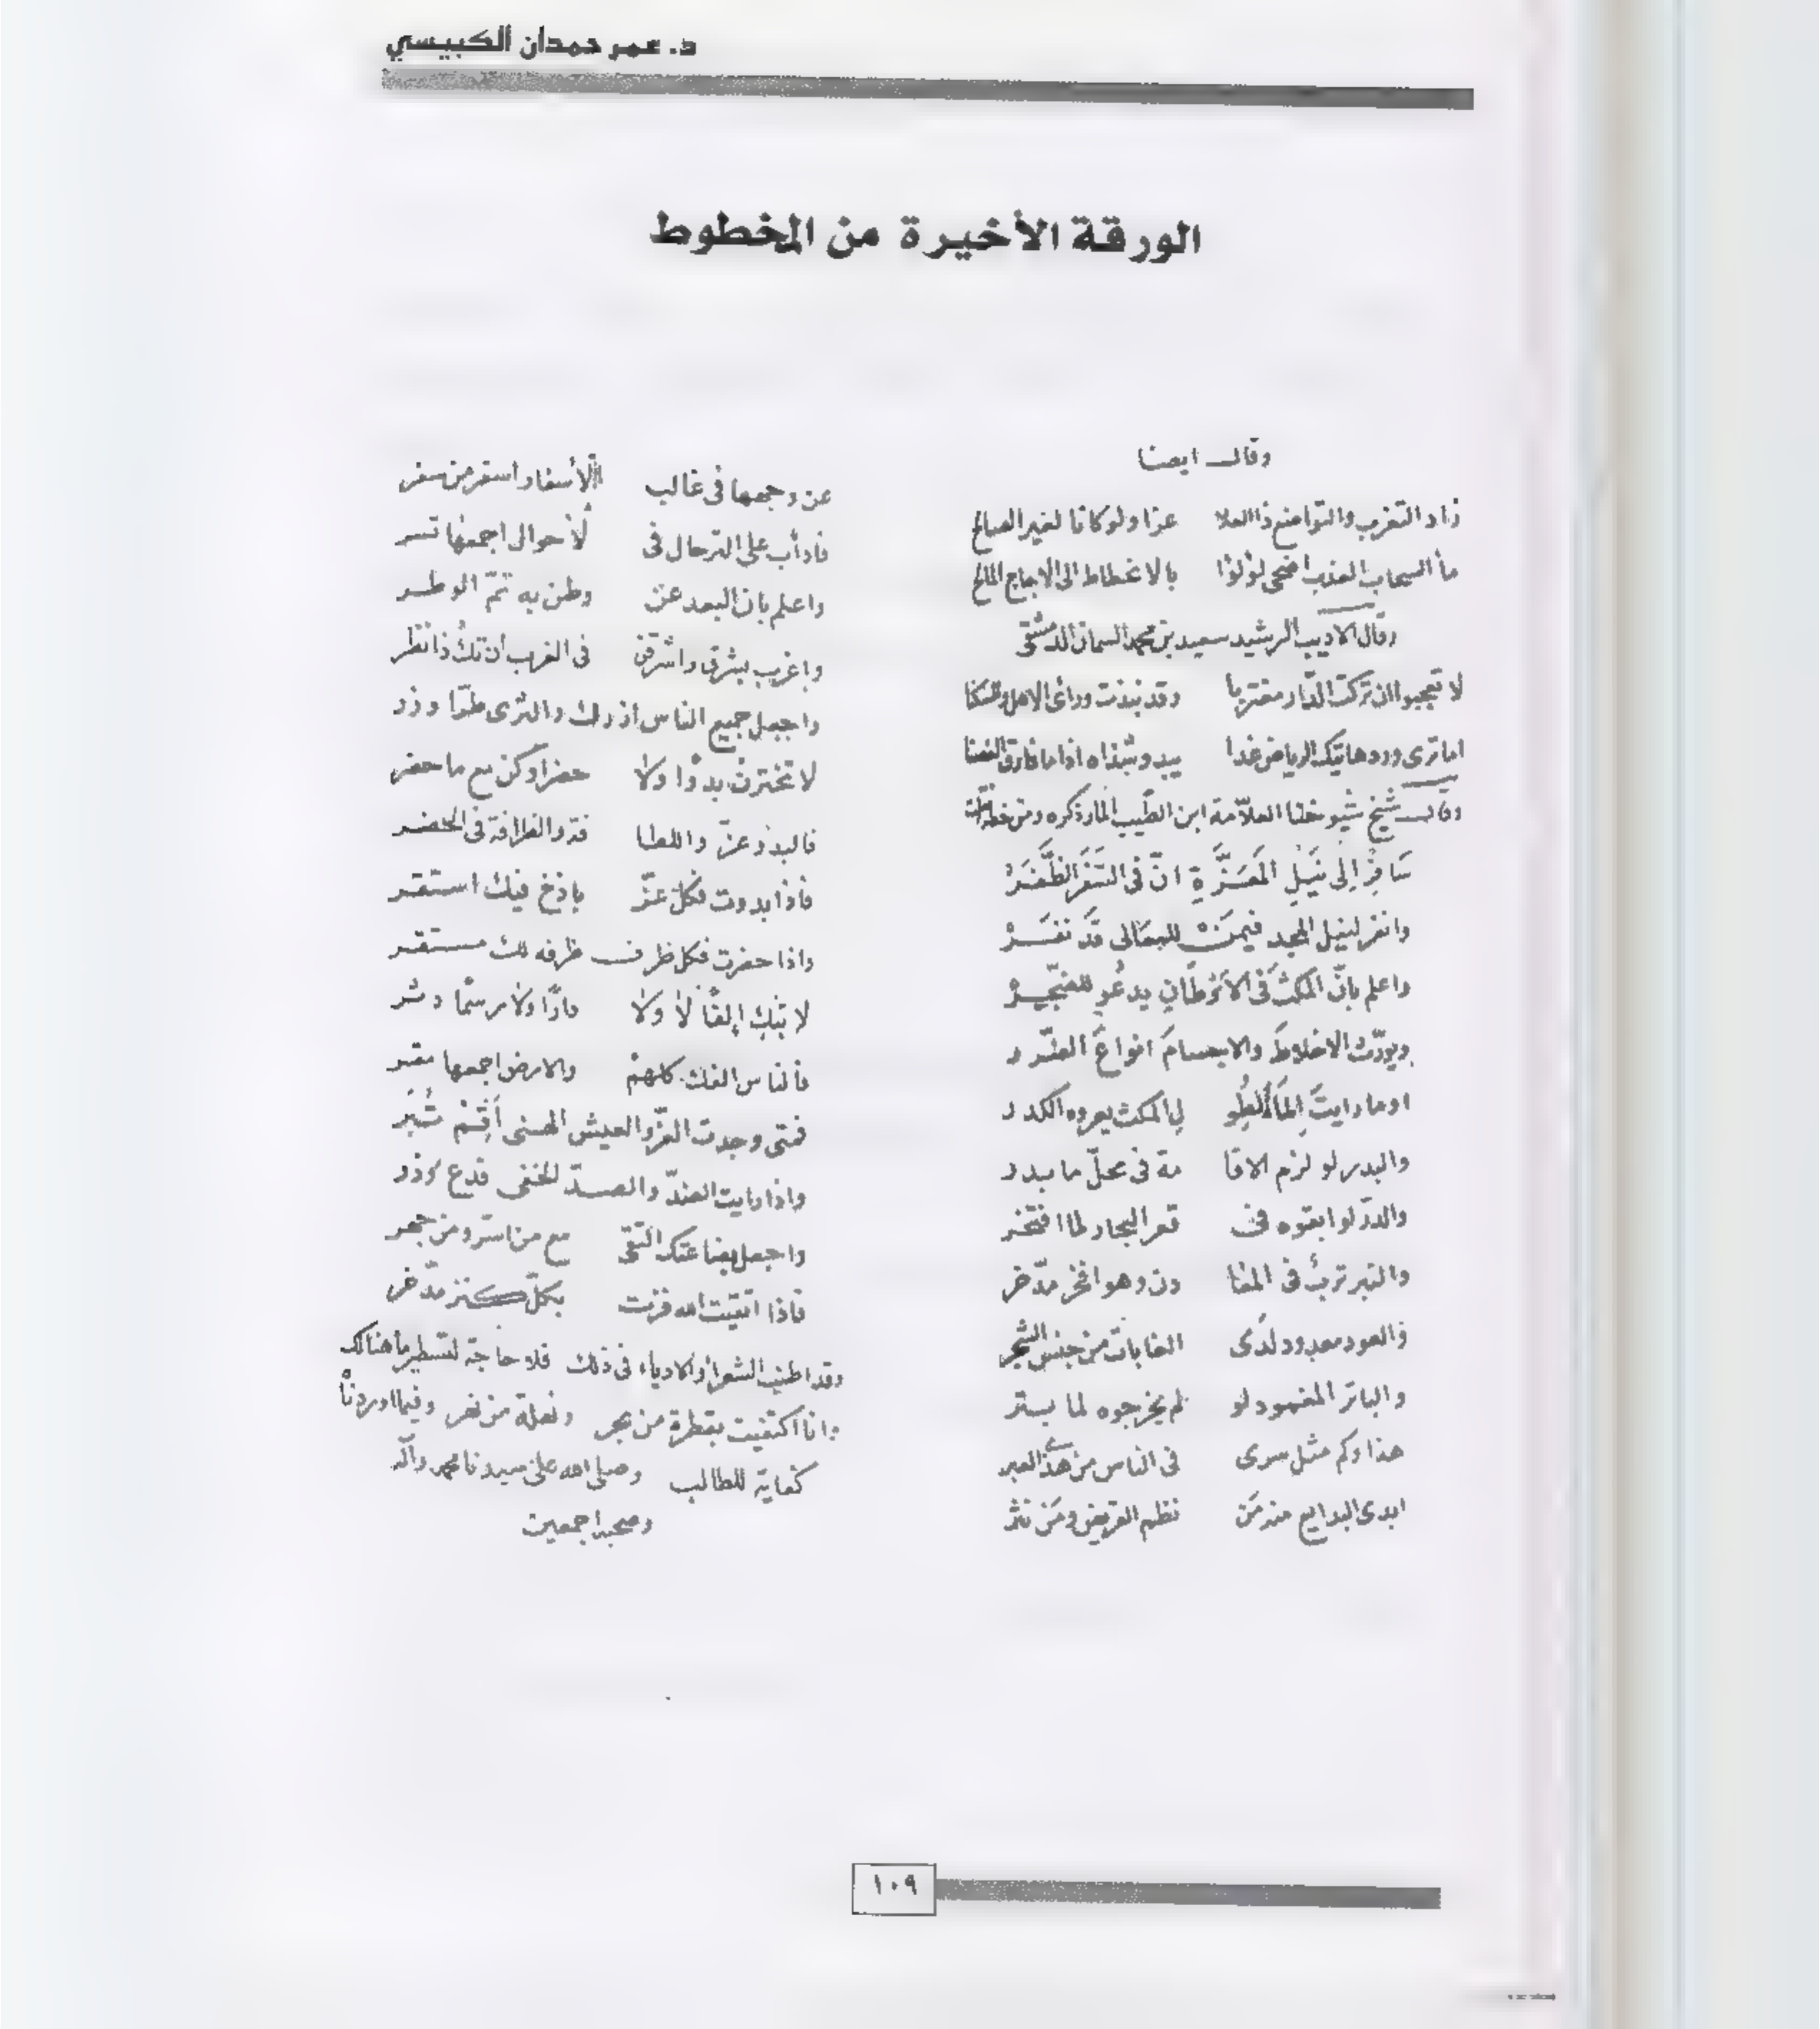 د. عمر حمدان الكبيسي
الورقة الأخيرة من المخطوط
وقال ايضا
زاد التغرب والتواضع ذا العلا عزا ولو كانا لغير الصالح
ماٴ السحاب العذب اضحى لؤلؤا بالانحطاط الى الاجاج المالح
وقال الاديب الرشيد سعيد بن محمد السمان الدمشقى
لا تعجبوا ان تركت الدار مغتربا وقد نبذت ورائى الاهل والسكنا
اما ترى ورد هاتيك الرياض غدا يبدو شذاه اذا ما فارق الغصنا
وقال شيخ شيوخنا العلّامة ابن الطيب المار ذكره ومن خطه
سَافِرْ اِلى نَيْلِ المَعَزَّةِ انّ فى السَّفَر الظَّفَرْ
وانفر لنيل المجد فيمَنْ للمعالى قَد نفَرْ
واعلم بانّ المكثَ فى الاَوْطَانِ يدعُو للضجَرْ
ويورّث الاخلاطَ والاجسامَ انواعَ الضرر
اوما رايتَ الماٴَ لطُو لِ المكث يعروه الكدر
والبدر لو لزم الاقا مة فى محلّ ما بدر
والدرّ لو ابقوه فى قعر البحار لما افتخر
والتبر تربٌ فى المعا دن وهو افخر مدّخر
والعود معدود لدى الغابات من جنس الشجر
والباتر المغمود لو لم يخرجوه لما بتر
هذا وكم مثل سرى فى الناس من هذى العبر
ابدى البدايع منه مَن نظم القريض ومَن نثر
عن وجهها فى غالب الأسفار اسفر من سفر
فادأب على الترحال فى الأحوال اجمعها تسر
واعلم بان البعد عن وطن به تمّ الوطر
واغرب بشرق واشرقن فى الغرب ان تكُ ذا نظر
واجعل جميع الناس ازرك والثرى طرّا وزر
لا تخترنْ بدوًا ولا حضرا وكن مع ما حضر
فالبدو عزّ واللطا فة والظرافة فى الحضر
فاذا بدوت فكل عزّ باذخ فيك استقر
واذا حضرت فكل ظرف ظرفه لك مستقر
لا تبكِ اِلفًا لا ولا دارًا ولا رسمًا دثر
فالناس الفك كلهمْ والارض اجمعها مقر
فمتى وجدت العزّ والعيش الهنى أَقِمْ تُبَر
واذا رايت الضدّ والصدّ الخفى فدع وذر
واجعل بضاعتك التقى مع من اسرّ ومن جهر
فاذا اتقيت الله فزت بكلّ كنز مدّخر
وقد اطنب الشعراٴ والادباء فى ذلك فلا حاجة لتسطير ما هنالك
وانا اكتفيت بقطرة من بحر ونملة من نفر وفيما اوردناٴ
كفاية للطالب وصلى الله على سيدنا محمد وآله
وصحبه اجمعين
١٠٩